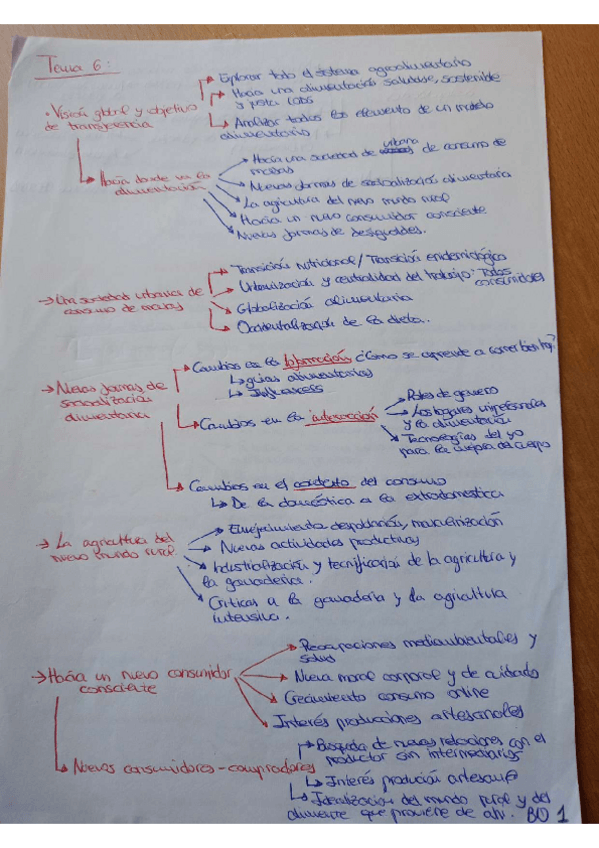 Tema 6:
• Visión global y objetivo de transferencia
→ Explorar todo el sistema agroalimentario
→ Hacia una alimentación saludable, sostenible
y justa
→ Analizar todos los elemento de un modelo
alimentario
→ Hacia donde va la
alimentación
→ Hacia una sociedad urbana de consumo de
masas
→ Nuevas formas de socialización alimentaria
→ La agricultura del nuevo mundo rural
→ Hacia un nuevo consumidor consciente
→ Nuevas formas de desigualdes.
→ Una sociedad urbana de
consumo de masas
→ Transición nutricional / Transición epidemiológica
→ Urbanización y centralidad del trabajo - Todos
consumidores
→ Globalización alimentaria
→ Occidentalización de la dieta..
→ Nuevas formas de
socialización
alimentaria
→ Cambios en la información ¿Cómo se aprende a comer bien hoy?
↳ guías alimentarias
↳ Influencers
→ Cambios en la interacción
→ Roles de género
→ Los hogares unipersonales
y la alimentación
→ Tecnologías del yo
para la mejora del cuerpo
→ Cambios en el contexto del consumo
↳ De la doméstica a la extradomestica
→ La agricultura del
nuevo mundo rural
→ Envejecimiento, despoblación, masculinización
→ Nuevas actividades productivas
→ Industrialización y tecnificación de la agricultura y
la ganaderia.
→ Críticas a la ganadería y la agricultura
intensiva.
→ Hacia un nuevo consumidor
consciente
→ Preocupaciones medioambientales y
salud
→ Nueva moral corporal y de cuidado
→ Crecimiento consumo online
→ Interés producciones artesanales
↳ Nuevos consumidores - compradores
→ Busqueda de nuevas relaciones con el
productor sin intermediarios
↳ Interés producción artesanal
↳ Idealización del mundo rural y del
alimento que proviene de ahí. BO 1